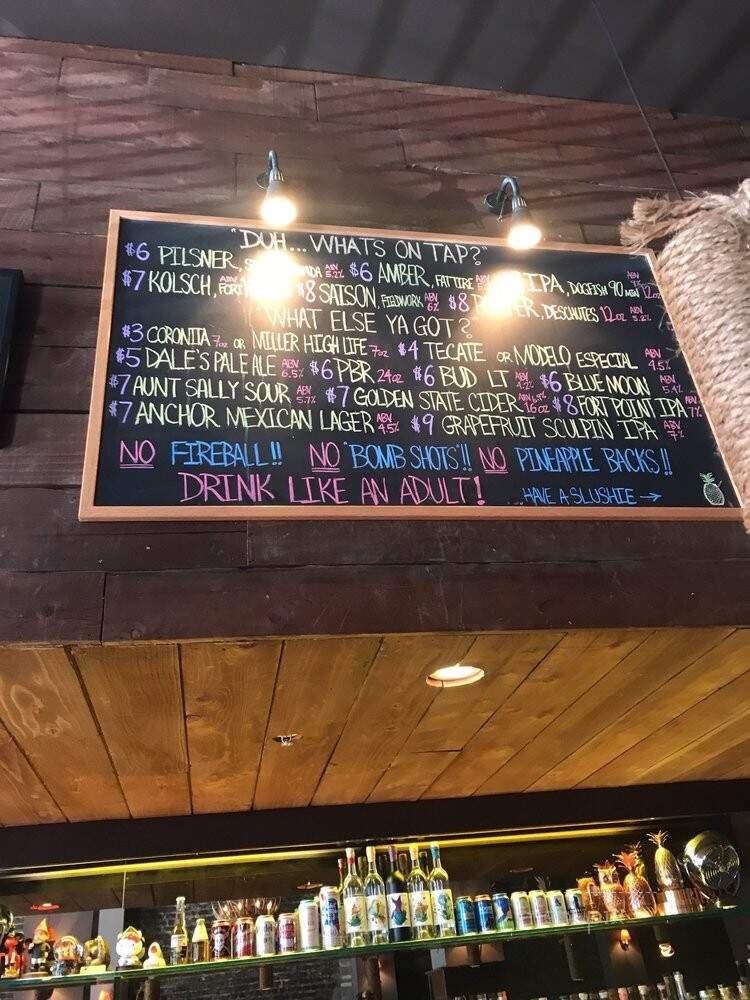 "DUH... WHATS ON TAP?"
$6 PILSNER, ABV 5.2% $6 AMBER, FAT TIRE IPA, DOGFISH 90 MIN ABV 9% 12oz
$7 KOLSCH, FORT $8 SAISON, FIELDWORK ABV 6% $8 DESCHUTES 12oz ABV 5.2%
WHAT ELSE YA GOT?
$3 CORONITA 7oz OR MILLER HIGH LIFE 7oz $4 TECATE OR MODELO ESPECIAL ABV 4.5%
$5 DALE'S PALE ALE ABV 6.5% $6 PBR 24oz $6 BUD LT ABV 4.2% $6 BLUE MOON ABV 5.4%
$7 AUNT SALLY SOUR ABV 5.7% $7 GOLDEN STATE CIDER ABV 16oz $8 FORT POINT IPA ABV 7%
$7 ANCHOR MEXICAN LAGER ABV 4.5% $9 GRAPEFRUIT SCULPIN IPA ABV 7%
NO FIREBALL!! NO "BOMB SHOTS"!! NO PINEAPPLE BACKS!!
DRINK LIKE AN ADULT! ...HAVE A SLUSHIE →